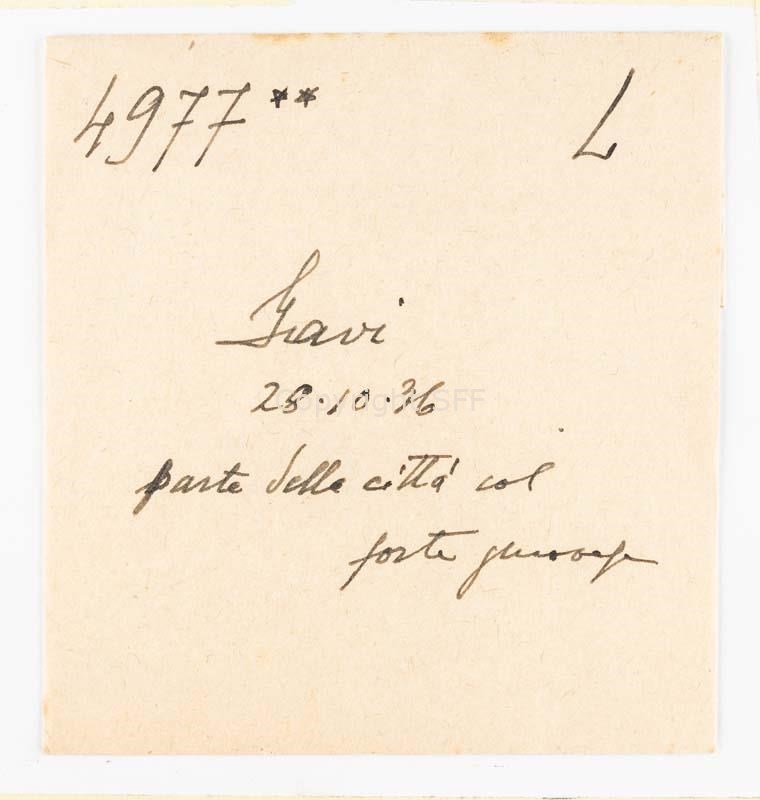 4977** L
Gavi
25.10.36
parte della città col
forte genovese
Copyright SFF